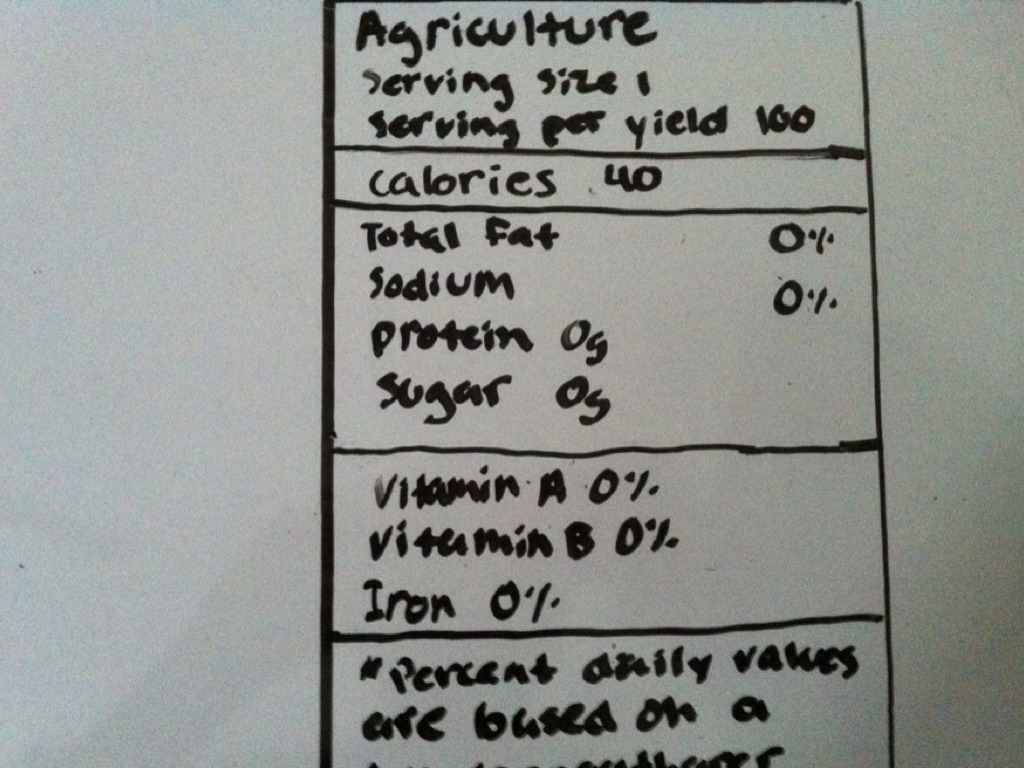 Agriculture
serving size 1
serving per yield 100
calories 40
Total Fat 0%
Sodium 0%
protein 0g
sugar 0g
Vitamin A 0%
Vitamin B 0%
Iron 0%
*Percent daily values
are based on a